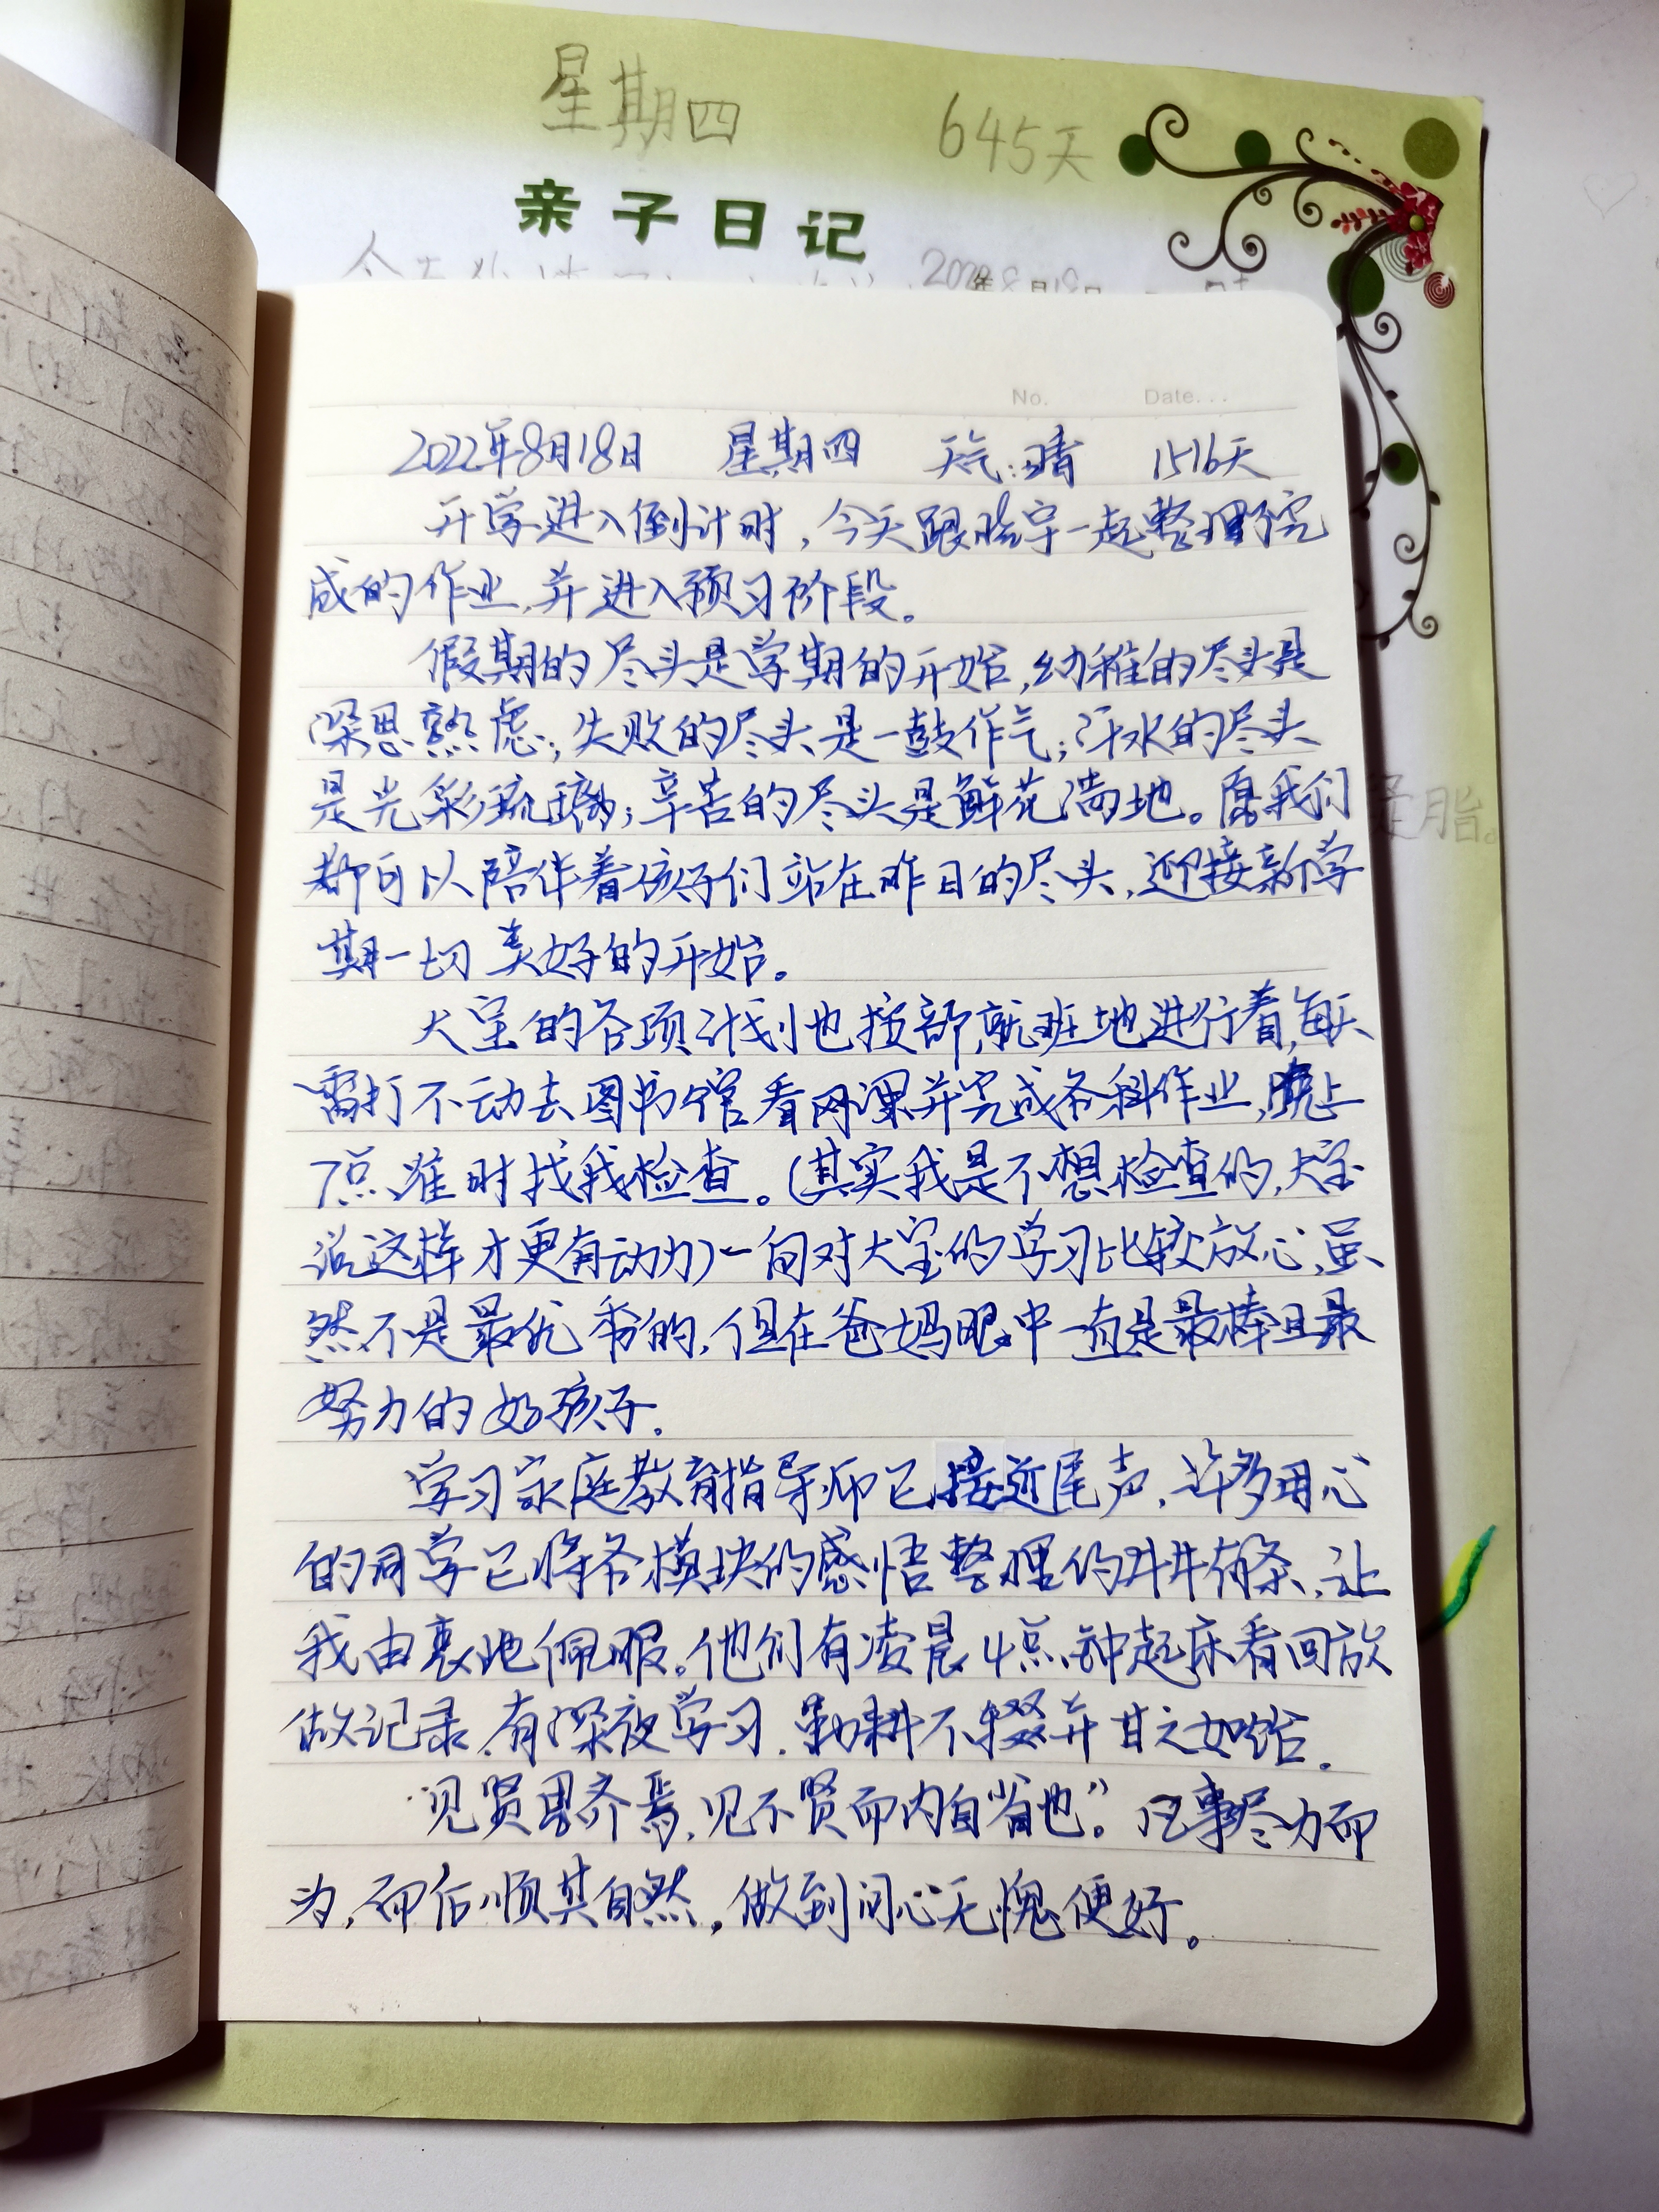 星期四 645天
亲子日记
No. Date...
2022年8月18日 星期四 天气:晴 1516天
开学进入倒计时,今天跟晓宇一起整理完
成的作业,并进入预习阶段。
假期的尽头是学期的开始,幼稚的尽头是
深思熟虑;失败的尽头是一鼓作气;汗水的尽头
是光彩琉璃;辛苦的尽头是鲜花满地。愿我们
都可以陪伴着孩子们站在昨日的尽头,迎接新学
期一切美好的开始。
大宝的各项计划也按部就班地进行着,每天
雷打不动去图书馆看网课并完成各科作业,晚上
7点准时找我检查。(其实我是不想检查的,大宝
说这样才更有动力)一向对大宝的学习比较放心,虽
然不是最优秀的,但在爸妈眼中一直是最棒且最
努力的好孩子.
学习家庭教育指导师已接近尾声,许多用心
的同学已将各模块的感悟整理的井井有条,让
我由衷地佩服。他们有凌晨4点钟起床看回放
做记录,有深夜学习.勤耕不辍并甘之如饴.
见贤思齐焉,见不贤而内自省也”。凡事尽力而
为,而后顺其自然,做到问心无愧便好。
是脂。